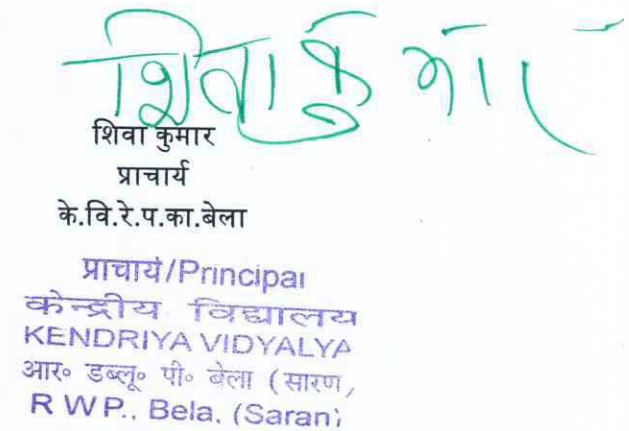 शिवा कुमार
शिवा कुमार
प्राचार्य
के.वि.रे.प.का.बेला
प्राचार्य/Principal
केन्द्रीय विद्यालय
KENDRIYA VIDYALYA
आर॰ डब्लू॰ पी॰ बेला (सारण)
R W P., Bela, (Saran)